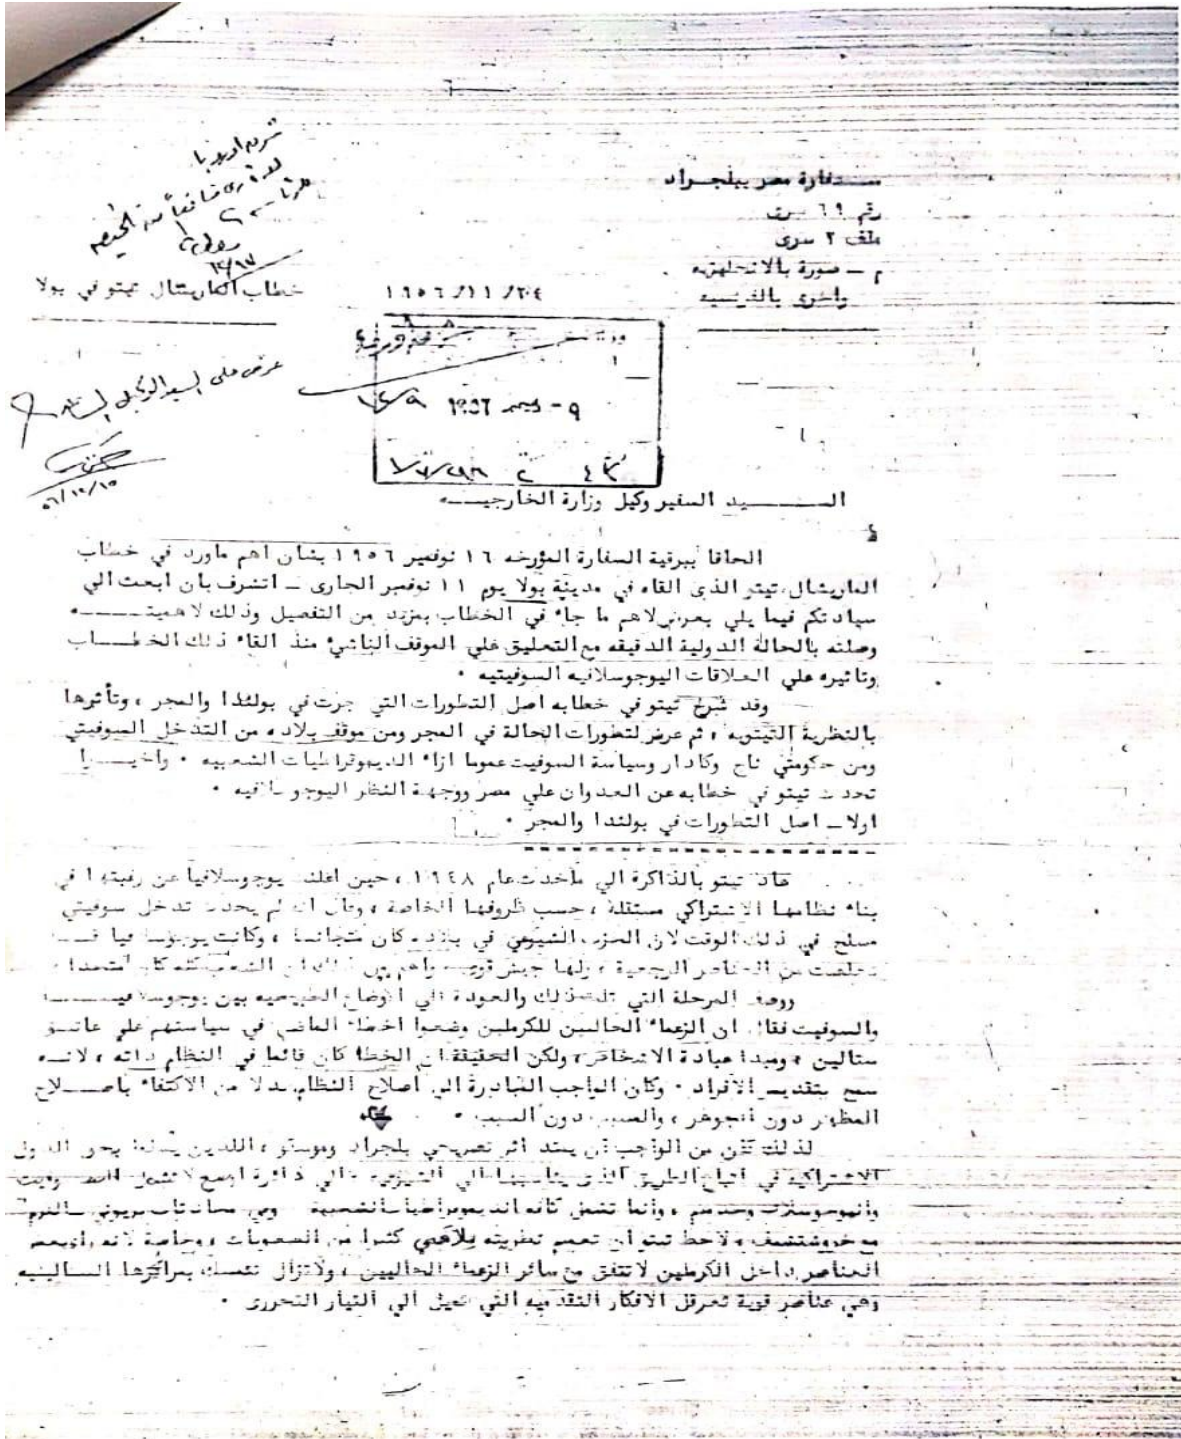 سفارة مصر ببلجراد
رقم ٦٩ سرى
ملف ٢ سرى
م ـ صورة بالانجليزيه
واخرى بالفرنسيه
١٩٥٦/١١/٢٤
خطاب الماريشال تيتو في بولا
٩ - ديسمبر ١٩٥٦
عرض على السيد الوكيل
٥٦/١٢/١٥
الســـــيد السفير وكيل وزارة الخارجيـــه
الحاقا ببرقية السفارة المؤرخه ١٦ نوفمبر ١٩٥٦ بشان اهم ماورد في خطاب
الماريشال تيتو الذى القاه في مدينة بولا يوم ١١ نوفمبر الجارى ـ اتشرف بان ابعث الي
سيادتكم فيما يلي بعرض لاهم ما جاء في الخطاب بمزيد من التفصيل وذلك لاهميتـــــه
وصلته بالحالة الدولية الدقيقه مع التعليق علي الموقف الناشئ منذ القاء ذلك الخطـــاب
وتاثيره علي العلاقات اليوجوسلافيه السوفيتيه ٠
وقد شرح تيتو في خطابه اصل التطورات التي جرت في بولندا والمجر ، وتأثرها
بالنظرية التيتويه ، ثم عرض لتطورات الحالة في المجر ومن موقف بلاده من التدخل السوفيتي
ومن حكومتي ناج وكادار وسياسة السوفيت عموما ازاء الديموقراطيات الشعبيه ٠ واخيـــرا
تحدث تيتو في خطابه عن العدوان علي مصر ووجهة النظر اليوجوسلافيه ٠
اولا ـ اصل التطورات في بولندا والمجر ٠
عاد تيتو بالذاكرة الي ماحدث عام ١٩٤٨ ، حين اعلنت يوجوسلافيا عن رغبتها في
بناء نظامها الاشتراكي مستقلة ، حسب ظروفها الخاصة ، وقال انه لم يحدث تدخل سوفيتي
مسلح في ذلك الوقت لان الحزب الشيوعي في بلاده كان متجانسا ، وكانت يوجوسلافيا قـــد
تخلصت من العناصر الرجعية ، ولها جيش قوى واهم من ذلك ان الشعب كله كان متحدا ٠
ووصف المرحلة التي تلت ذلك والعودة الي الاوضاع الطبيعيه بين يوجوسلافيـــا
والسوفيت فقال ان الزعماء الحاليين للكرملين وضعوا اخطاء الماضي في سياستهم علي عاتـــق
ستالين ، ومبدا عبادة الاشخاص ، ولكن الحقيقة ان الخطا كان قائما في النظام ذاته ، لانـــه
سمح بتقديس الافراد ٠ وكان الواجب المبادرة الي اصلاح النظام بدلا من الاكتفاء باصـــلاح
المظهر دون الجوهر ، والمسبب دون السبب ٠
لذلك كان من الواجب ان يمتد اثر تصريحي بلجراد وموسكو ، اللذين يسلما بحق الدول
الاشتراكية في اتباع الطريق الذى يناسبها الي الشيوعيه ، الي دائرة اوسع لا تشمل السوفيت
واليوجوسلاف وحدهم ، وانما تشمل كافة الديموقراطيات الشعبية وفي محادثات بريوني ـ القرم
مع خروشتشيف ، لاحظ تيتو ان تعميم نظريته يلاقي كثيرا من الصعوبات ، وخاصة لانه راى بعض
العناصر داخل الكرملين لا تتفق مع سائر الزعماء الحاليين ، ولا تزال تتمسك بمراكزها الستالينيه
وهي عناصر قوية تعرقل الافكار التقدميه التي تميل الي التيار التحررى ٠